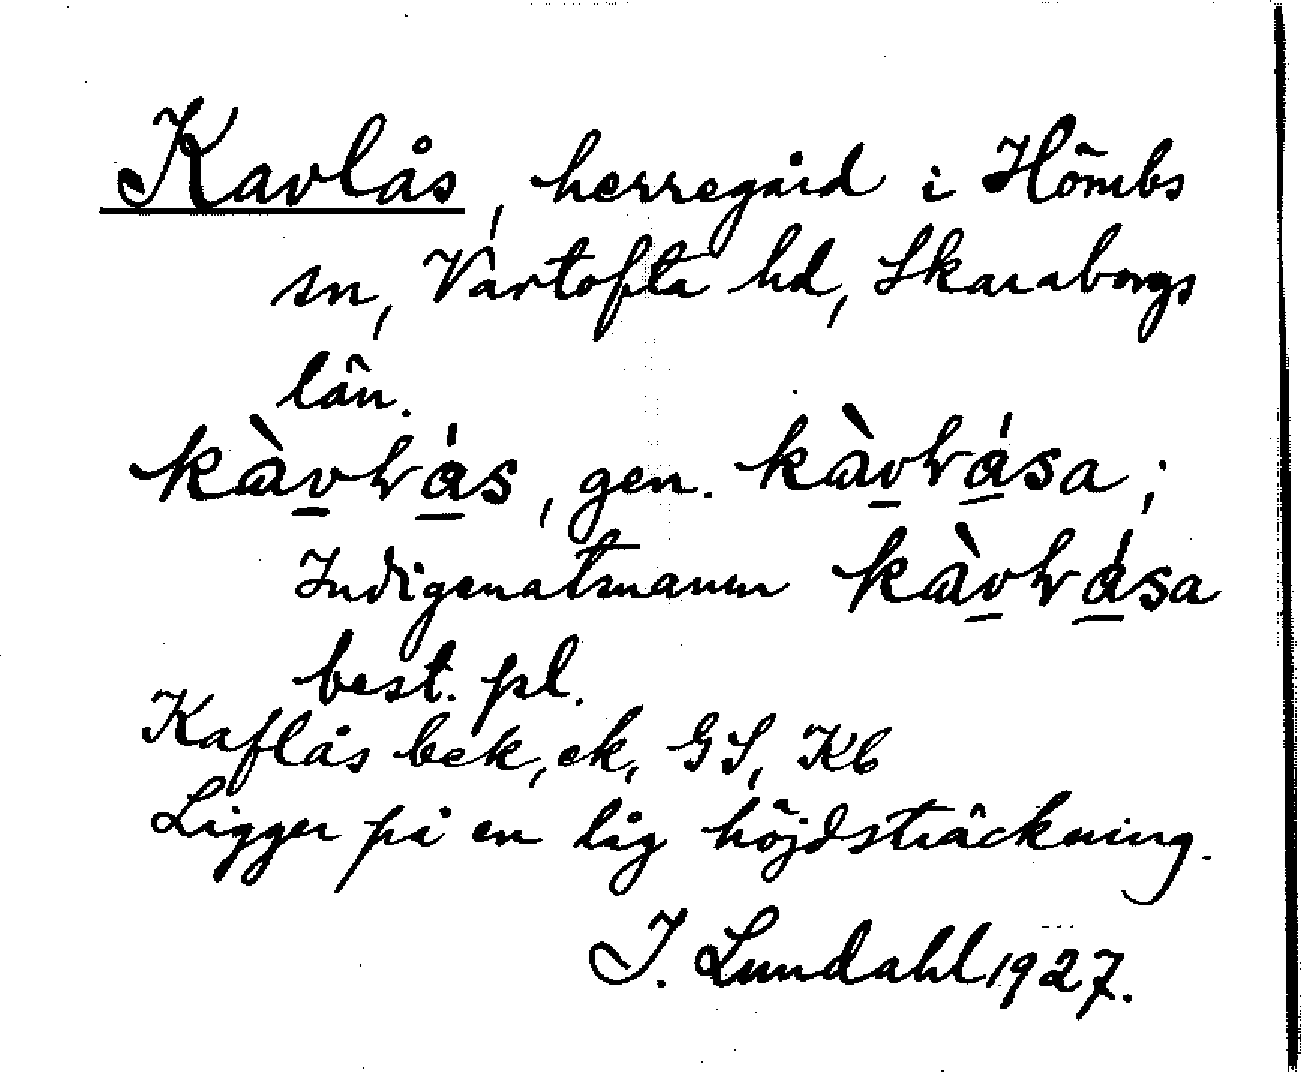 Kavlås, herregård i Hömbs
sn, Vartofta hd, Skaraborgs
län.
kàvlrás, gen. kàvlrása;
Indigenatsnamn kàvlrása
best. pl.
Kaflås bek, ek, GS, Kb
Ligger på en låg höjdsträckning.
I. Lundahl 1927.